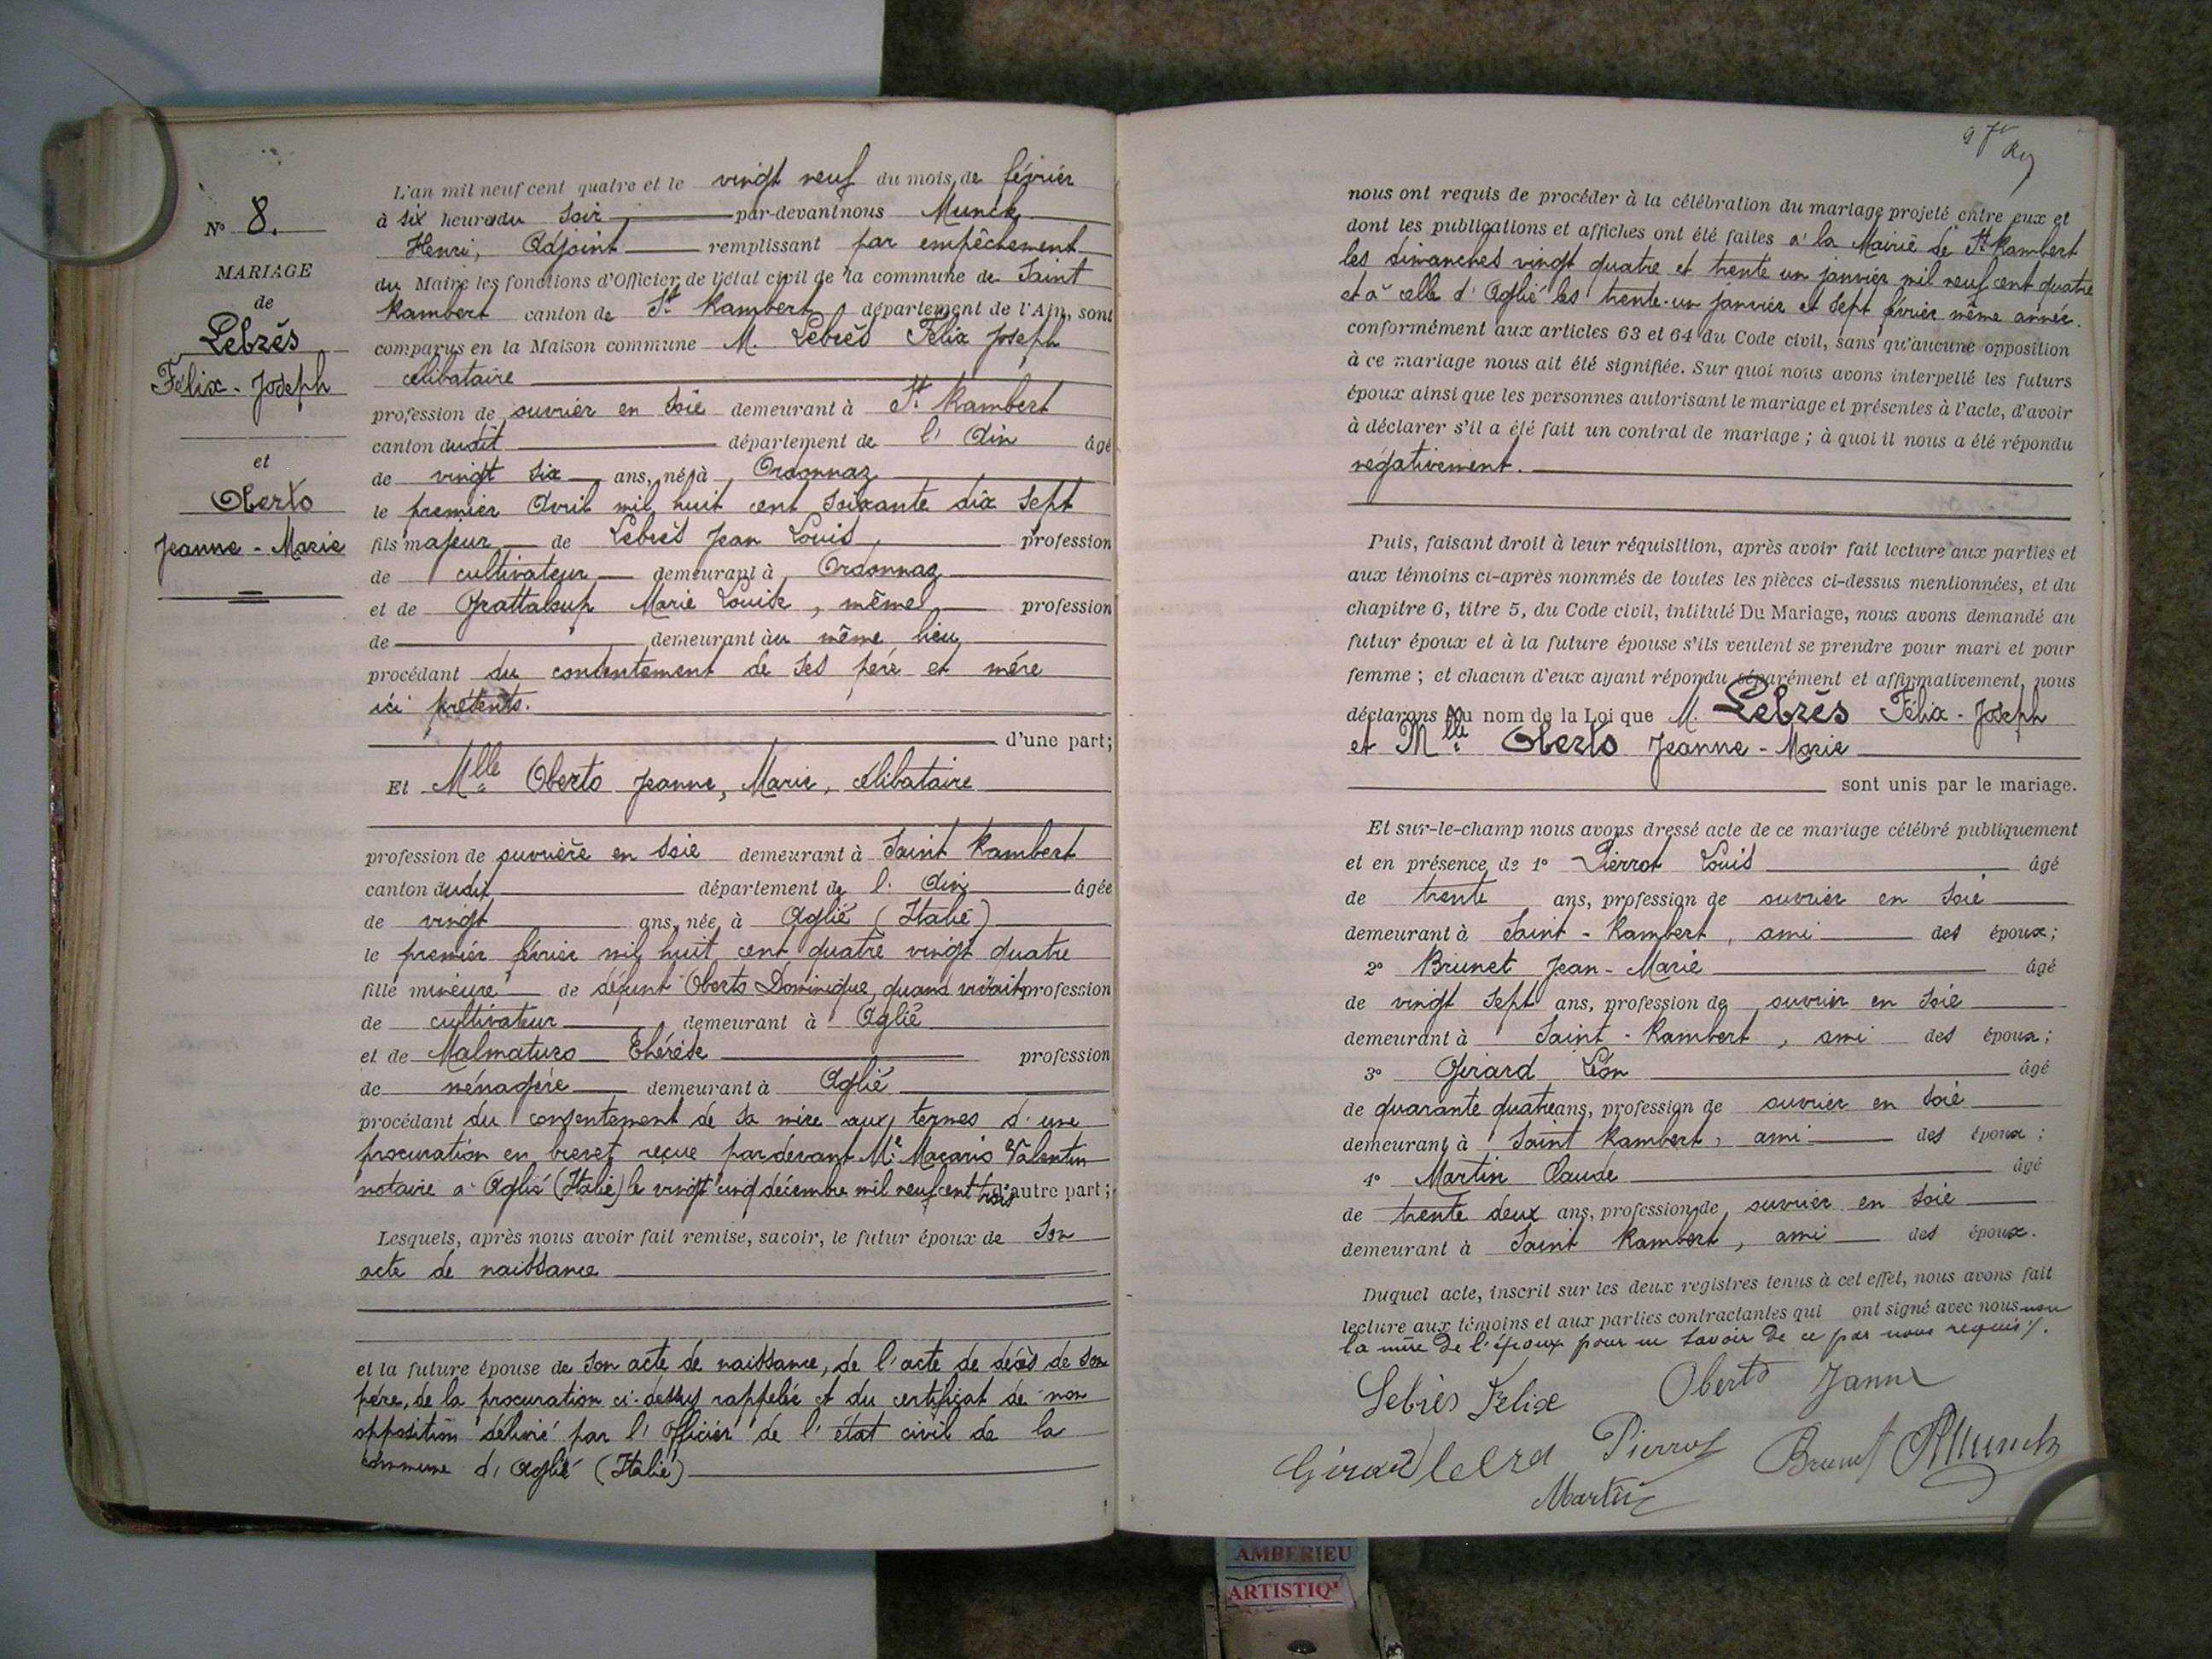 N° 8.
MARIAGE
de
Lebrès
Félix - Joseph
et
Oberto
Jeanne - Marie
L'an mil neuf cent quatre et le vingt neuf du mois de février
à six heures du soir par-devant nous Munck
Henri, Adjoint remplissant par empêchement
du Maire les fonctions d'Officier de l'état civil de la commune de Saint
Rambert canton de St Rambert, département de l'Ain, sont
comparus en la Maison commune M. Lebrès Félix Joseph
célibataire
profession de ouvrier en soie demeurant à St Rambert
canton dudit département de l'Ain âgé
de vingt six ans, né à Ordonnaz
le premier Avril mil huit cent soixante dix sept
fils majeur de Lebrès Jean Louis, profession
de cultivateur demeurant à Ordonnaz
et de Grattaloup Marie Louise, même profession
de demeurant au même lieu
procédant du consentement de ses père et mère
ici présents.
d'une part;
Et Mlle Oberto Jeanne, Marie, célibataire
profession de ouvrière en soie demeurant à Saint Rambert
canton dudit département de l'Ain âgée
de vingt ans, née à Aglié (Italie)
le premier février mil huit cent quatre vingt quatre
fille mineure de défunt Oberto Dominique, quand vivait profession
de cultivateur demeurant à Aglié
et de Malmaturo Thérèse profession
de ménagère demeurant à Aglié
procédant du consentement de sa mère aux termes d'une
procuration en brevet reçue pardevant Me Macario Valentin
notaire à Aglié (Italie) le vingt cinq décembre mil neuf cent trois d'autre part;
Lesquels, après nous avoir fait remise, savoir, le futur époux de son
acte de naissance
et la future épouse de son acte de naissance, de l'acte de décès de son
père, de la procuration ci-dessus rappelée et du certificat de non
opposition délivré par l'Officier de l'état civil de la
commune d'Aglié (Italie)
nous ont requis de procéder à la célébration du mariage projeté entre eux et
dont les publications et affiches ont été faites à la Mairie de St Rambert
les dimanches vingt quatre et trente un janvier mil neuf cent quatre
et à celle d'Aglié les trente-un janvier et sept février même année.
conformément aux articles 63 et 64 du Code civil, sans qu'aucune opposition
à ce mariage nous ait été signifiée. Sur quoi nous avons interpellé les futurs
époux ainsi que les personnes autorisant le mariage et présentes à l'acte, d'avoir
à déclarer s'il a été fait un contrat de mariage; à quoi il nous a été répondu
négativement.
Puis, faisant droit à leur réquisition, après avoir fait lecture aux parties et
aux témoins ci-après nommés de toutes les pièces ci-dessus mentionnées, et du
chapitre 6, titre 5, du Code civil, intitulé Du Mariage, nous avons demandé au
futur époux et à la future épouse s'ils veulent se prendre pour mari et pour
femme; et chacun d'eux ayant répondu séparément et affirmativement, nous
déclarons au nom de la Loi que M. Lebrès Félix - Joseph
et Mlle Oberto Jeanne - Marie
sont unis par le mariage.
Et sur-le-champ nous avons dressé acte de ce mariage célébré publiquement
et en présence de 1° Pierrot Louis âgé
de trente ans, profession de ouvrier en soie
demeurant à Saint - Rambert, ami des époux;
2° Brunet Jean - Marie âgé
de vingt sept ans, profession de ouvrier en soie
demeurant à Saint - Rambert, ami des époux;
3° Girard Léon âgé
de quarante quatre ans, profession de ouvrier en soie
demeurant à Saint Rambert, ami des époux;
4° Martin Claude âgé
de trente deux ans, profession de ouvrier en soie
demeurant à Saint Rambert, ami des époux.
Duquel acte, inscrit sur les deux registres tenus à cet effet, nous avons fait
lecture aux témoins et aux parties contractantes qui ont signé avec nous non
la mère de l'époux pour ne savoir de ce par nous requis.
Lebrès Félix Oberto Janne
Girard Pierrot Brunet Munck
Martin
AMBERIEU
ARTISTIQ